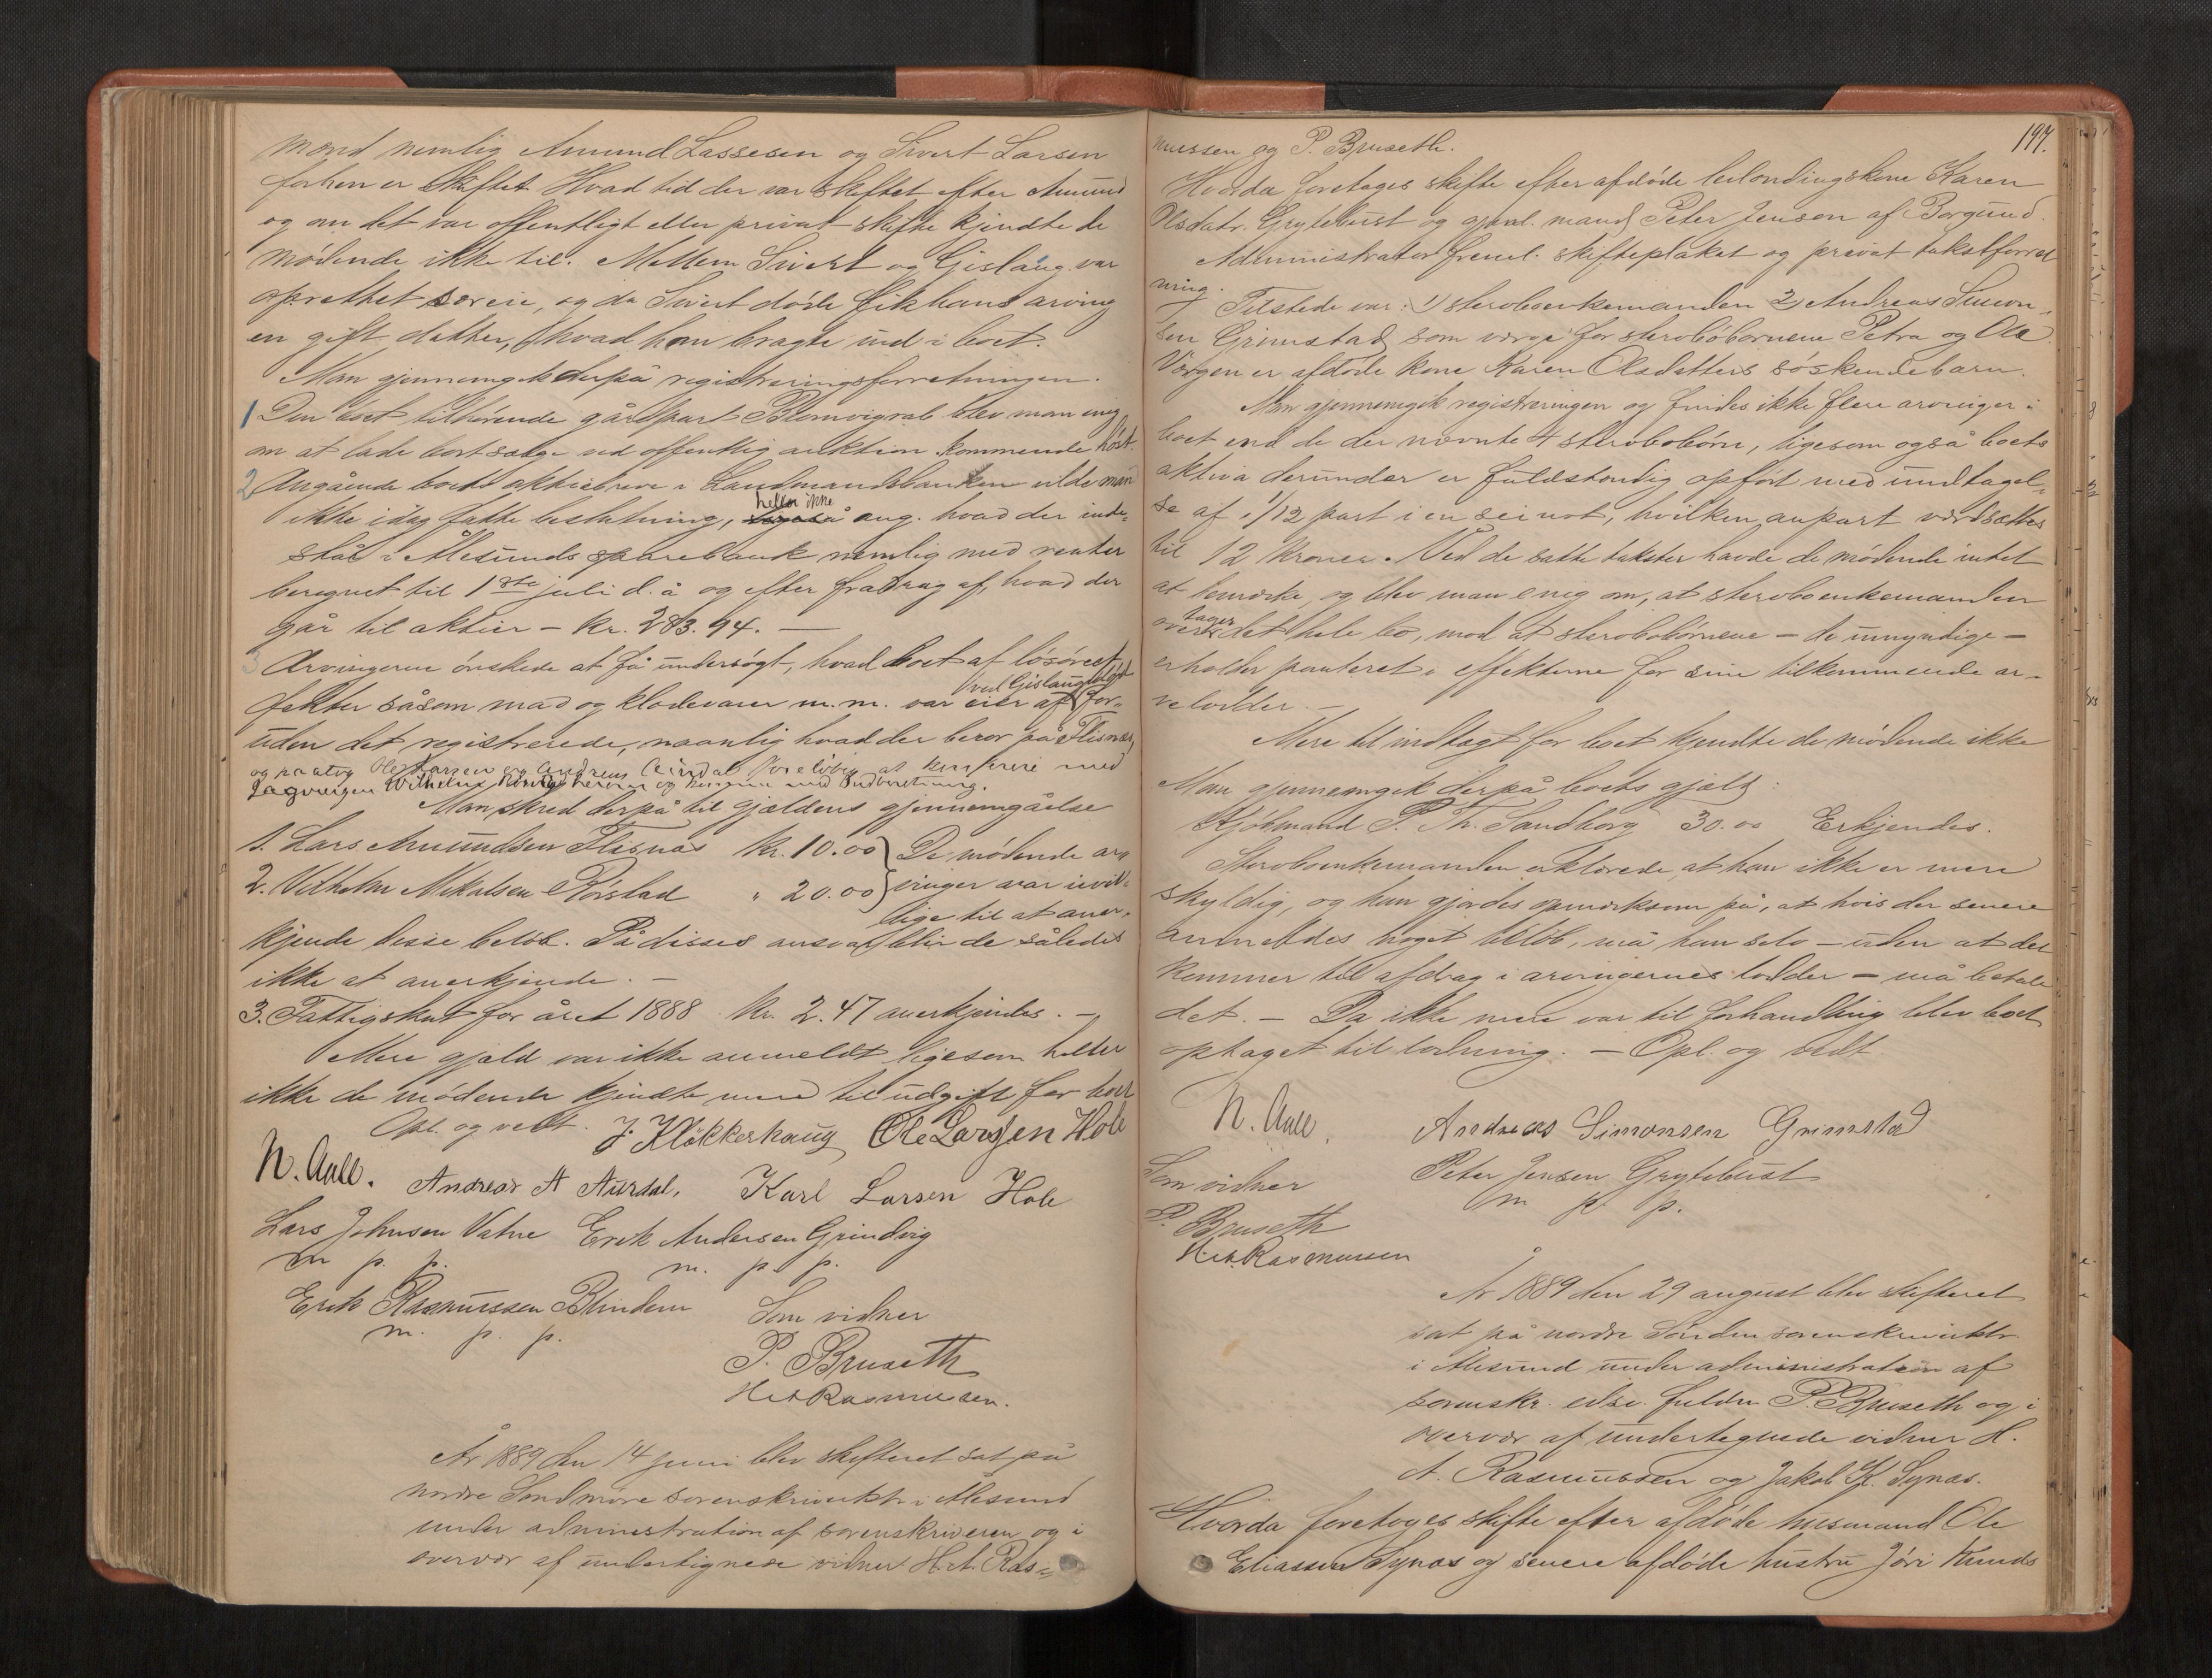 mænd nemlig Amund Lassesen og Sivert Larsen
forhen er skiftet. Hvad tid der var skiftet efter Amund
og om det var offentligt eller privat skifte kjendte de
mødende ikke til. Mellem Sivert og Gislaug var
oprettet særeie, og da Sivert døde fik hans arving
en gift datter, hvad han bragte ind i boet.
Man gjennemgik derpå registreringsforretningen.
1 Den boet tilhørende gårdpart Blomvigrab blev man enig
om at lade bortsælge ved offentlig auktion kommende høst.
2 Angående boets aktiebreve i Landmandsbanken vilde man
heller ikke
ikke idag fatte beslutning, ang. hvad der inde-
står i Ålesunds sparebank nemlig med renter
beregnet til 1ste juli d.å og efter fradrag af, hvad der
går til aktier – kr. 283.94. —
3 Arvingerne ønskede at få undersøgt, hvad boet af løsøreef-
ved Gislaugs død
fekter såsom mad og klædevarer m.m. var eier af for-
uden det registrerede, navnlig hvad der beror på Flisnæs,
og paatog Ole Larsen og Andreas Aurdal foreløbig at konferere med
Lagvergen Wilhelm og med Indberetning.
Man skred derpå til gjældens gjennemgåelse
1. Lars Amundsen Flisnæs kr. 10.00 } De mødende ar-
2. Vilhelm Mikalsen Rørstad " 20.00 } vinger var uvil-
lige til at aner-
kjende disse beløb. På disses ansvar blir de således
ikke at anerkjende. –
3. Fattigskat for året 1888 kr. 2.47 anerkjendes. –
Mere gjæld var ikke anmeldt ligesom heller
ikke de mødende kjendte mere til udgift for boet
Opl. og vedt. J. Kløkkerhaug Ole Larsen Hole
N. Aall. Andreas A Aurdal, Karl Larsen Hole
Lars Johnsen Vatne Erik Andersen Grindvig
m p. p. m. p. p.
Erik Rasmussen Blindem Som vidner
m. p. p.
P. Bruseth
H A Rasmussen.
År 1889 den 14 juni blev skifteret sat på
nordre Søndmøre sorenskriverktr. i Ålesund
under administration af sorenskriveren og i
overvær af undertegnede vidner H. A. Ras-
197.
mussen og P. Bruseth.
Hvorda foretoges skifte efter afdøde leilendingskone Karen
Olsdatr. Grytebust og gjenl. mand Peter Jensen af Borgund.
Administrator freml. skifteplakat og privat takstforret
ning.
Tilstede var: 1) sterboenkemanden 2) Andreas Simon-
sen Grimstad som værge for sterbøbørnene Petra og Ole.
Værgen er afdøde kone Karen Olsdatters søskendebarn.
Man gjennemgik registreringen og findes ikke flere arvinger i
boet end de der nævnte 4 sterbobørn, ligesom også boets
aktiva derunder er fuldstændig opført med undtagel-
se af 1/12 part i en seinot, hvilken anpart værdsættes
til 12 kroner. Ved de satte takster havde de mødende intet
at bemærke, og blev man enig om, at sterboenkemanden
tager
over det hele bo, mod at sterbobørnene – de umyndige –
erholder panteret i effekterne for sine tilkommende ar-
velodder. –
Mere til indtægt for boet kjendte de mødende ikke
Man gjennemgik derpå boets gjæld:
Kjøbmand P. Th. Sandborg 30.00 Erkjendes.
Sterboenkemanden erklærede, at han ikke er mere
skyldig, og han gjordes opmærksom på, at hvis der senere
anmeldes noget beløb, må han selv – uden at det
kommer til afdrag i arvingernes lodder – må betale
det. – Da ikke mere var til forhandling blev boet
optaget til lodning. – Opl. og vedt.
N. Aall. Andreas Simonsen Grimstad
Som vidner Peter Jensen Grytebust
m p. p.
P. Bruseth
H A Rasmussen
År 1889 den 29 august blev skifteret
sat på nordre Søndm. sorenskriverktr.
i Ålesund under administration af
sorenskr. edsv. fuldm. P. Bruseth og i
overvær af undertegnede vidner H.
A. Rasmussen og Jakob K. Synæs.
Hvorda foretoges skifte efter afdøde husmand Ole
Eliassen Synæs og senere afdøde hustru Jøri Knuds